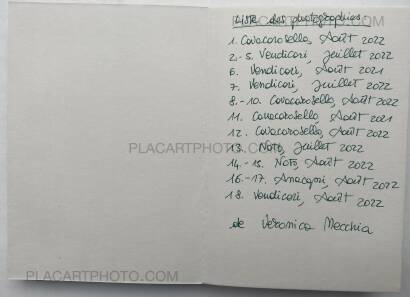 Liste des photographies:
1. Cavacarosello, Août 2022
2.-5. Vendicari, Juillet 2022
6. Vendicari, Août 2021
7. Vendicari, Juillet 2022
8.-10. Cavacarosello, Août 2022
11. Cavacarosello, Août 2021
12. Cavacarosello, Août 2022
13. Noto, Juillet 2022
PLACARTPHOTO.COM
14.-15. Noto, Août 2022
16.-17. Anacapri, Août 2022
18. Vendicari, Août 2022
de Veronica Mecchia
PLACARTPHOTO.COM